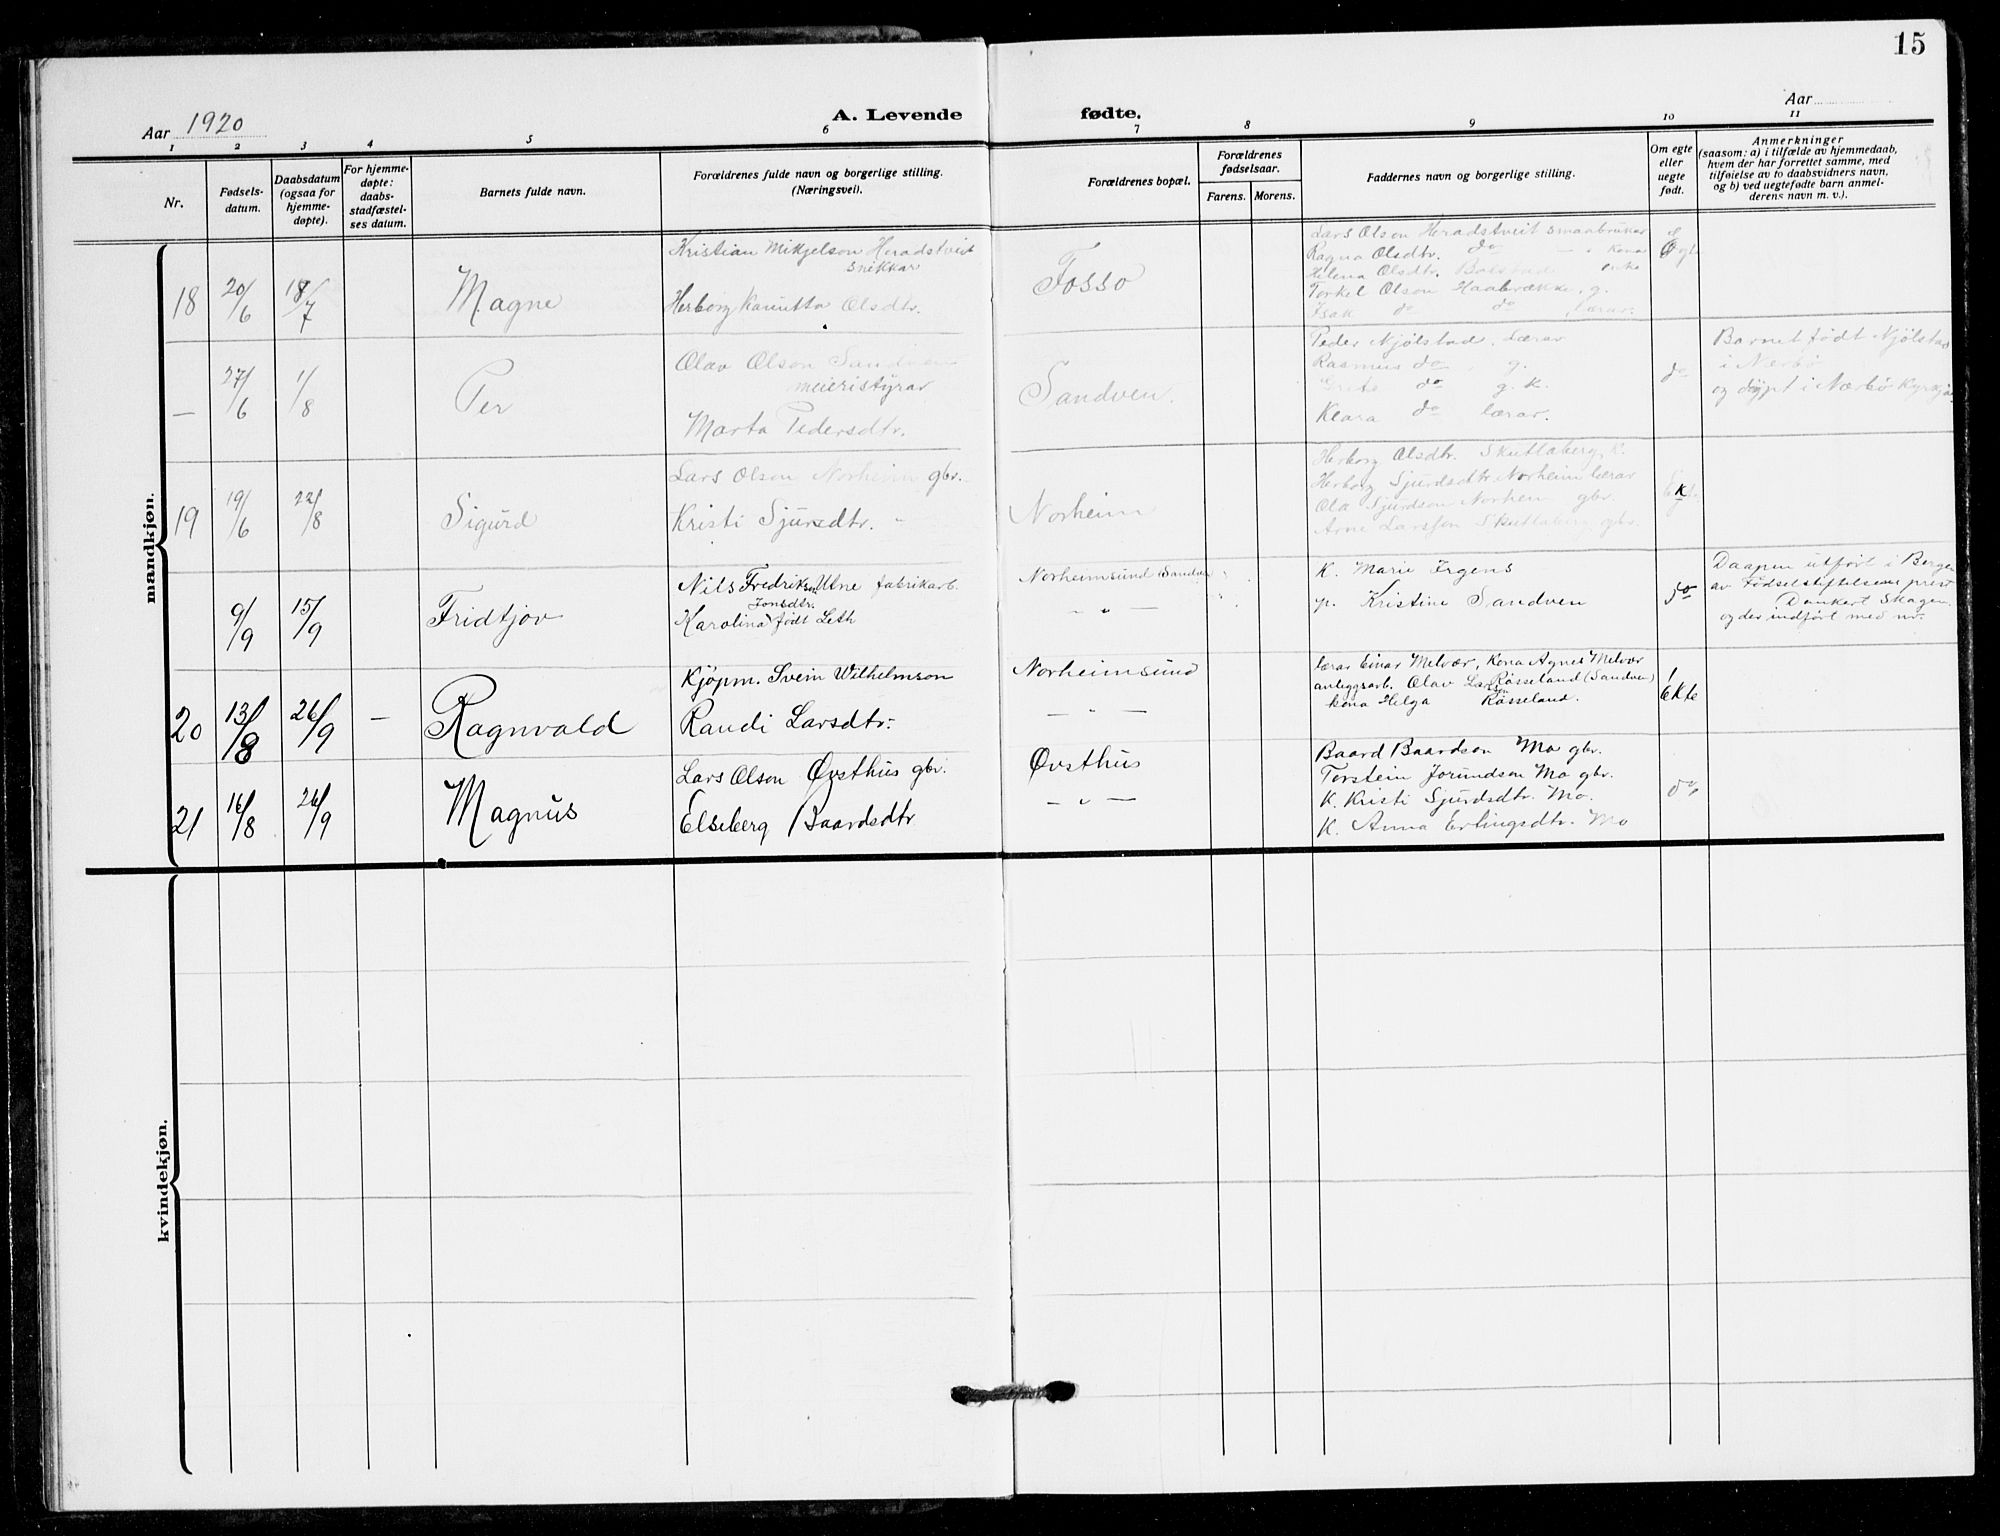 15
Aar 1920
A. Levende fødte.
Aar
1 2 3 4 5 6 7 8 9 10 11
Nr.
Fødsels-
datum.
Daabsdatum
(ogsaa for
hjemme-
døpte).
For hjemme-
døpte:
daabs-
stadfæstel-
ses datum.
Barnets fulde navn.
Forældrenes fulde navn og borgerlige stilling.
(Næringsvei).
Forældrenes bopæl.
Forældrenes
fødselsaar.
Farens. Morens.
Faddernes navn og borgerlige stilling.
Om egte
eller
uegte
født.
Anmerkninger
(saasom: a) i tilfælde av hjemmedaab,
hvem der har forrettet samme, med
tilføielse av to daabsvidners navn,
og b) ved uegtefødte barn anmel-
derens navn m. v.).
mandkjøn.
18 20/6 18/7 Magne
Kristian Mikjelson Heradstveit
snikkar
Herborg Kanutta Olsdtr.
Fosso
Lars Olson Heradstveit smaabrukar
Ragna Olsdtr. do — " kona
Helena Olsdtr. enke
Torkel Olson Haabrække, g.
Isak do do lærar.
— 27/6 1/8 Per
Olav Olson Sandven
meieristyrar
Marta Pedersdtr.
Sandven.
Peder Njølstad, Lærar
Rasmus do, g.
Grete do g. k.
Klara do lærar.
do
Barnet født Njølstad
i Nærbø
og døypt i Nærbø Kyrkja
19 19/6 22/8 Sigurd
Lars Olson Norheim gbr.
Kristi Sjursdtr. "
Norheim
Herborg Olsdtr. Skutlaberg, k.
Herborg Sjurdsdtr Norheim lærar
Ola Sjurdson Norheim gbr.
Arne Larsson Skutlaberg gbr.
9/9 15/9 Fridtjov
Nils Fredriksen Utne fabrikarb.
Jonsdtr.
Karolina født Leth
Norheimsund (Sandven)
— " —
K. Marie Irgens
p. Kristine Sandven
do
Daapen utført i Bergen
av Fødselstiftelsens prest
Dankert Skagen
og der indført med nr.
20 13/8 26/9 — Ragnvald
Kjøpm. Svein Wilhelmson
Randi Larsdtr.
Norheimsund
— " —
lærar Einar Melvær, Kona Agnes Melvær
anleggsarb. Olav Larsen Røsseland (Sandven)
kona Helga Røsseland.
Ekte
21 16/8 26/9 Magnus
Lars Olson Øvsthus gbr.
Elseberg Baardsdtr
Øvsthus
— " —
Baard Baardson Mo gbr.
Torstein Jorundson Mo gbr.
K. Kristi Sjurdsdtr. Mo.
K. Anna Erlingsdtr. Mo
do
kvindekjøn.